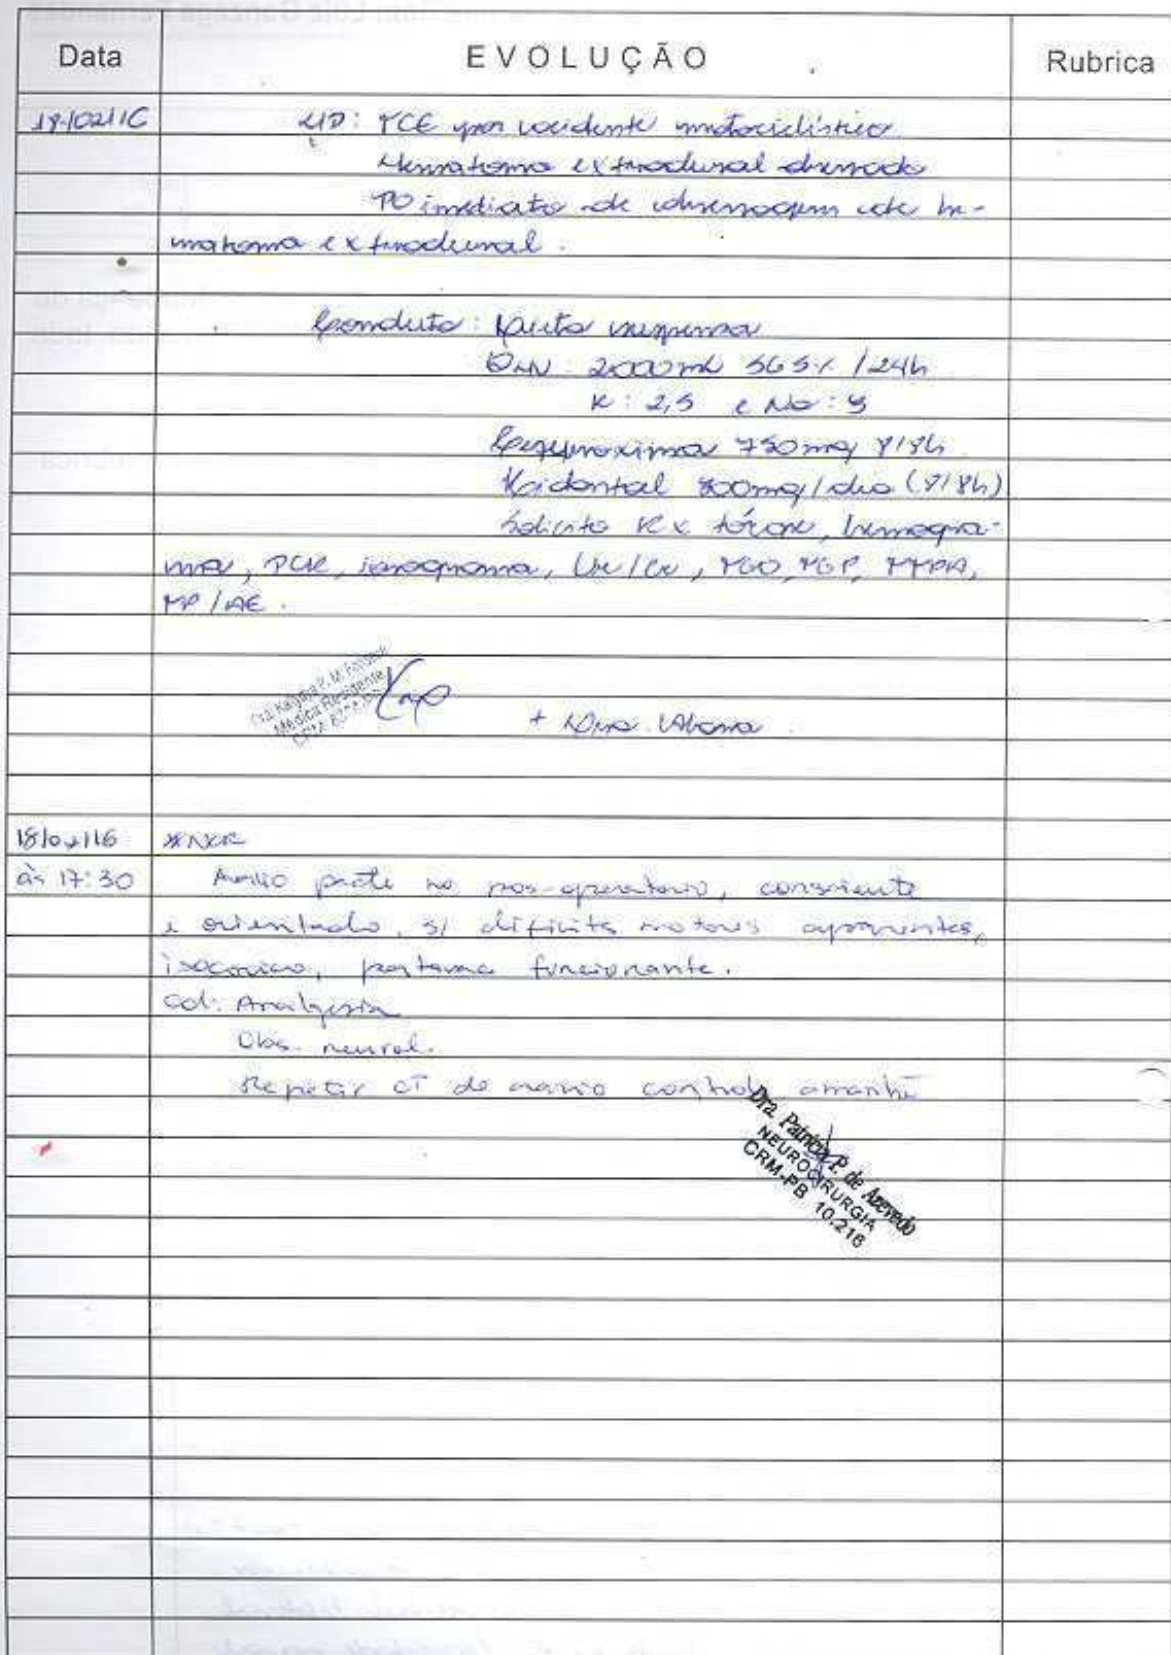 Data EVOLUÇÃO Rubrica
18/02/16 HD: TCE por acidente motociclístico
Hematoma extradural drenado
PO imediato de drenagem de he-
matoma extradural.
Conduta: Dieta suspensa
2000ml SG5% /24h
K: 2,5 e Na:
Cefuroxima 750mg 8/8h
Hidantal 300mg/dia (8/8h)
Solicito RX tórax, hemogra-
ma, PCR, ionograma, Ur/Cr, TGO, TGP, TTPA,
TP/AE.
Médica Residente
+ Dra.
18/02/16 #NCR
às 17:30 Avalio pcte no pos-operatorio, consciente
e orientado, s/ deficits motores aparentes,
isocorico, portovac funcionante.
Cd: Analgesia
Obs. neurol.
Repetir CT de cranio controle amanhã
Dra. Patricia P. de Azevedo
NEUROCIRURGIA
CRM-PB 10.216